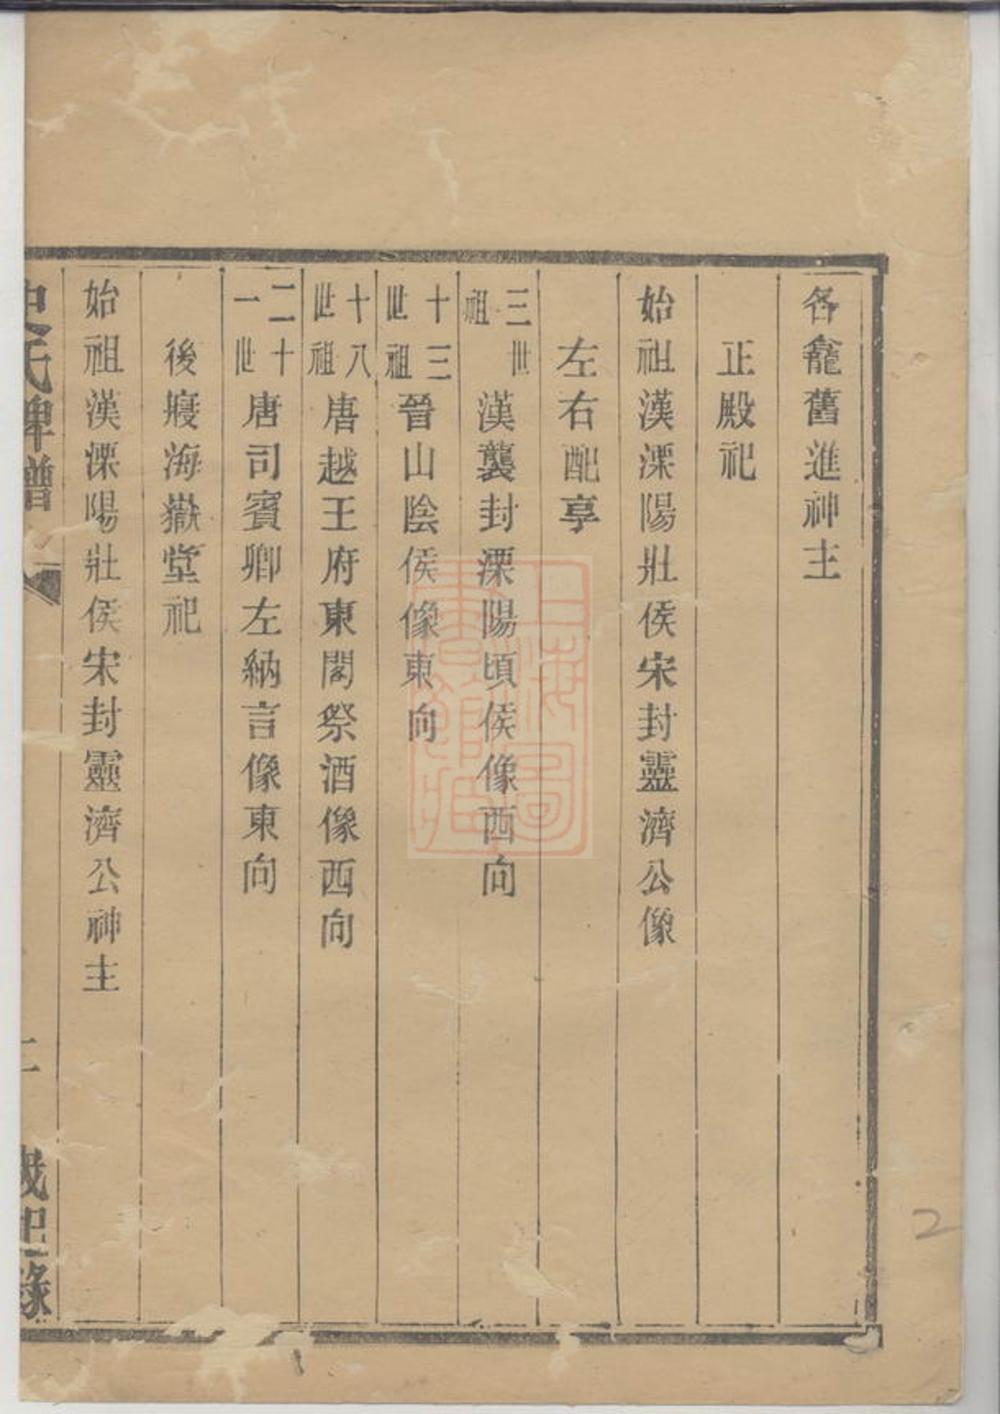 各龕舊進神主
正殿祀
始祖漢溧陽壯侯宋封靈濟公像
左右配享
三世祖漢襲封溧陽頃侯像西向
十三世祖晉山陰侯像東向
十八世祖唐越王府東閣祭酒像西向
二十一世唐司賓卿左納言像東向
後寢海嶽堂祀
始祖漢溧陽壯侯宋封靈濟公神主
史氏譜
二
祀錄
上海圖書館藏
2